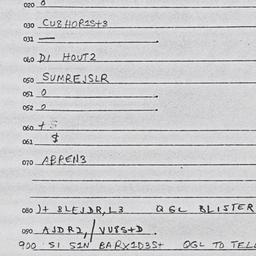 020 0
030 CU8HOR1St3
031 —
040 D1 HOUT2
050 SUMREJSLR
051 0
052 0
060 +S
061 $
070 ABPEN3
080 )+ 8LEJDR, L3 QGL BLISTER
090 AJDR2,/VU8S+D
900 S1 S2N BARX1D3S+ QGL TO TELL